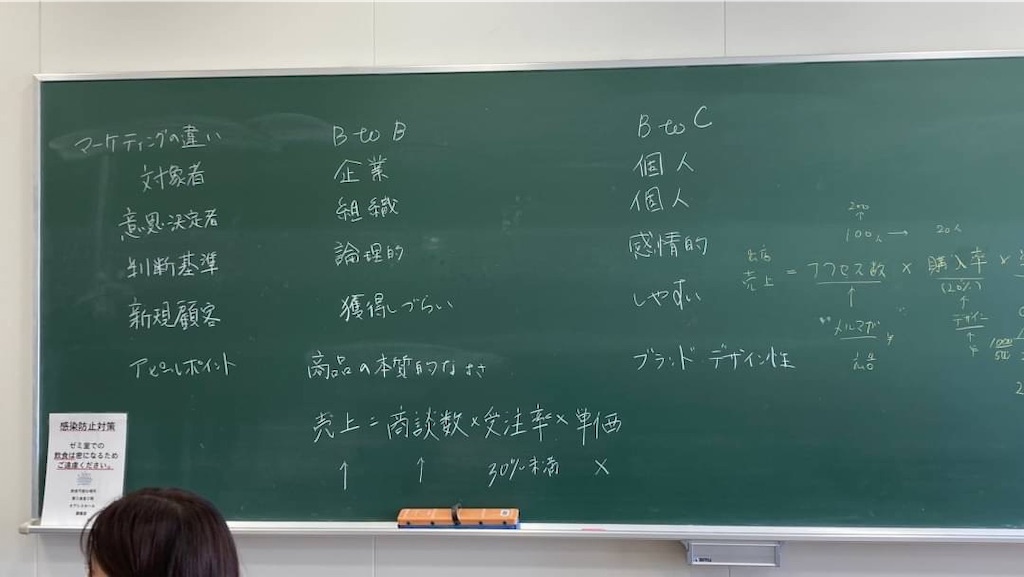 マーケティングの違い BtoB BtoC
対象者 企業 個人
意思決定者 組織 個人
判断基準 論理的 感情的
新規顧客 獲得しづらい しやすい
アピールポイント 商品の本質的なよさ ブランド・デザイン性
売上=商談数×受注率×単価
↑ ↑ 30%未満 ×
200
↑
100人 → 20人
売上 = アクセス数 × 購入率 ×
(20%)
↑ ↑
メルマガ デザイン
↑
感染防止対策
ゼミ室での
飲食は密になるため
ご遠慮ください。